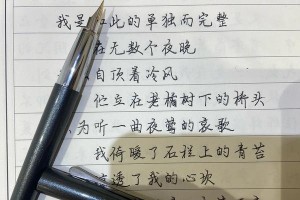 我是如此的单独而完整
在无数个夜晚
自顶着冷风
伫立在老橘树下的桥头
为听一曲夜莺的哀歌
我倚暖了石栏上的青苔
凉透了我的心坎